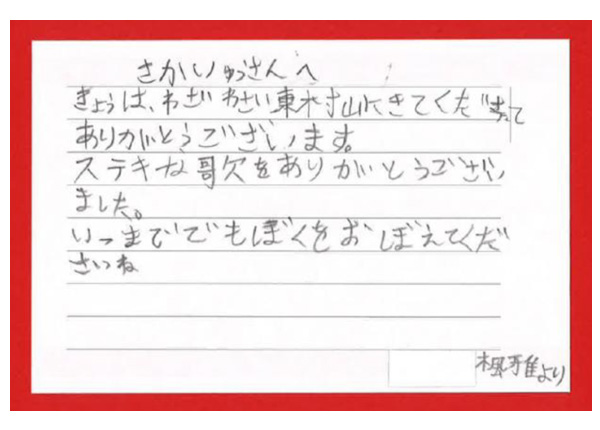 さかいゅうさんへ
きょうは、わざわざ東村山にきてくださって
ありがとうございます。
ステキな歌をありがとうござい
ました。
いつまでもぼくをおぼえてくだ
さいね
楓雅より